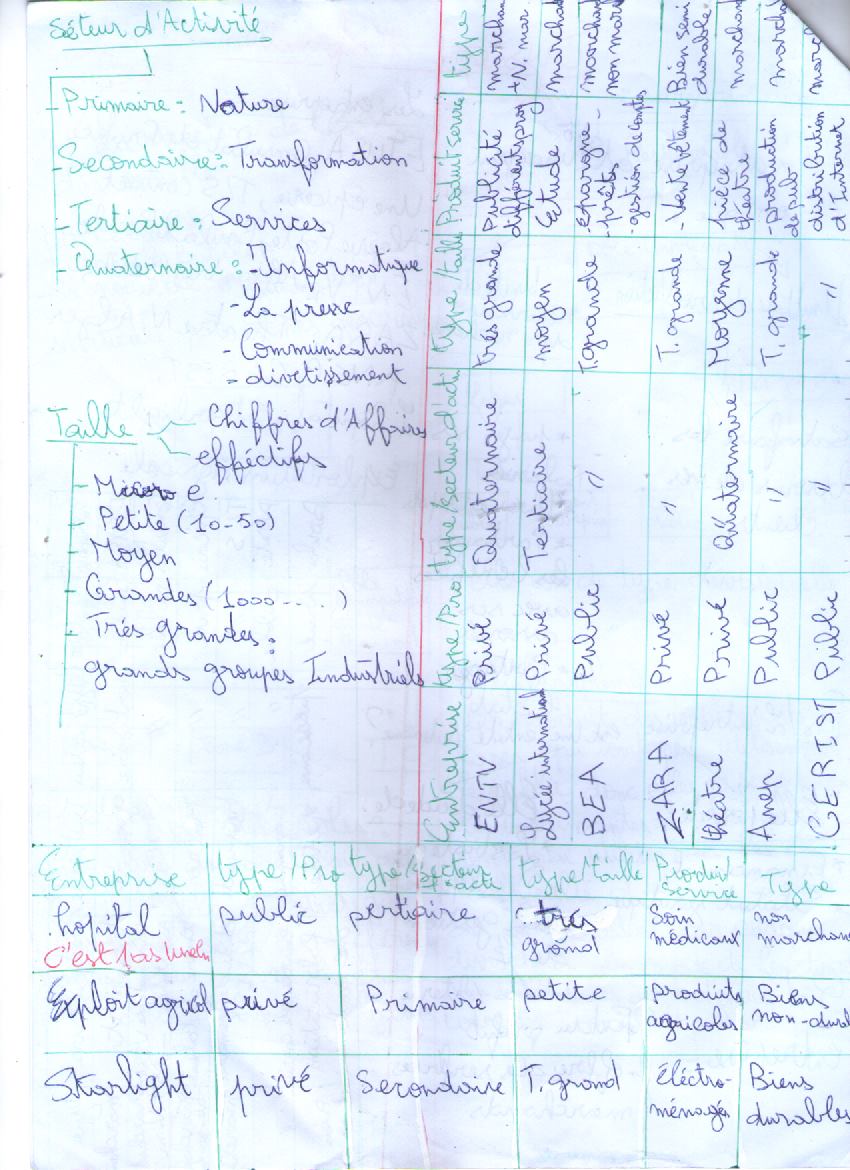 Séteur d'Activité
Primaire : Nature
Secondaire : Transformation
Tertiaire : Services
Quaternaire : - Informatique
- La presse
- Communication
- divetissement
Taille
Chiffres d'Affaires
efféctifs
- Micro e.
- Petite (10-50)
- Moyen
- Grandes (1000.....)
- Trés grandes :
grands groupes Industriels
Entreprise type/Pro type/secteur d'acti type/taille Produit service type
ENTV Privé Quaternaire trés grande Publicité différents prog marchand +N. mar.
Lycée international Privé Tertiaire moyen Etude marchand
BEA Public // T.grande épargne - prêtes - gestion de comptes moorchand non mar
ZARA Privé // T. grande - Vente vêtement Bien semi durable
théâtre Privé Quaternaire Moyenne pièce de théatre marchand
Anep Public // T. grande - production de pub march
CERIST Public // // distribution d'Internet march
Entreprise type/Pro type/secteur d'acti type/taille Produit/ Service Type
hopital public pertiaire trés grand Soin médicaux non marchan
C'est pas une
Exploit agricol privé Primaire petite produits agricoles Biens non-durabl
Starlight privé Secondaire T. grand Éléctro-ménagé Biens durables